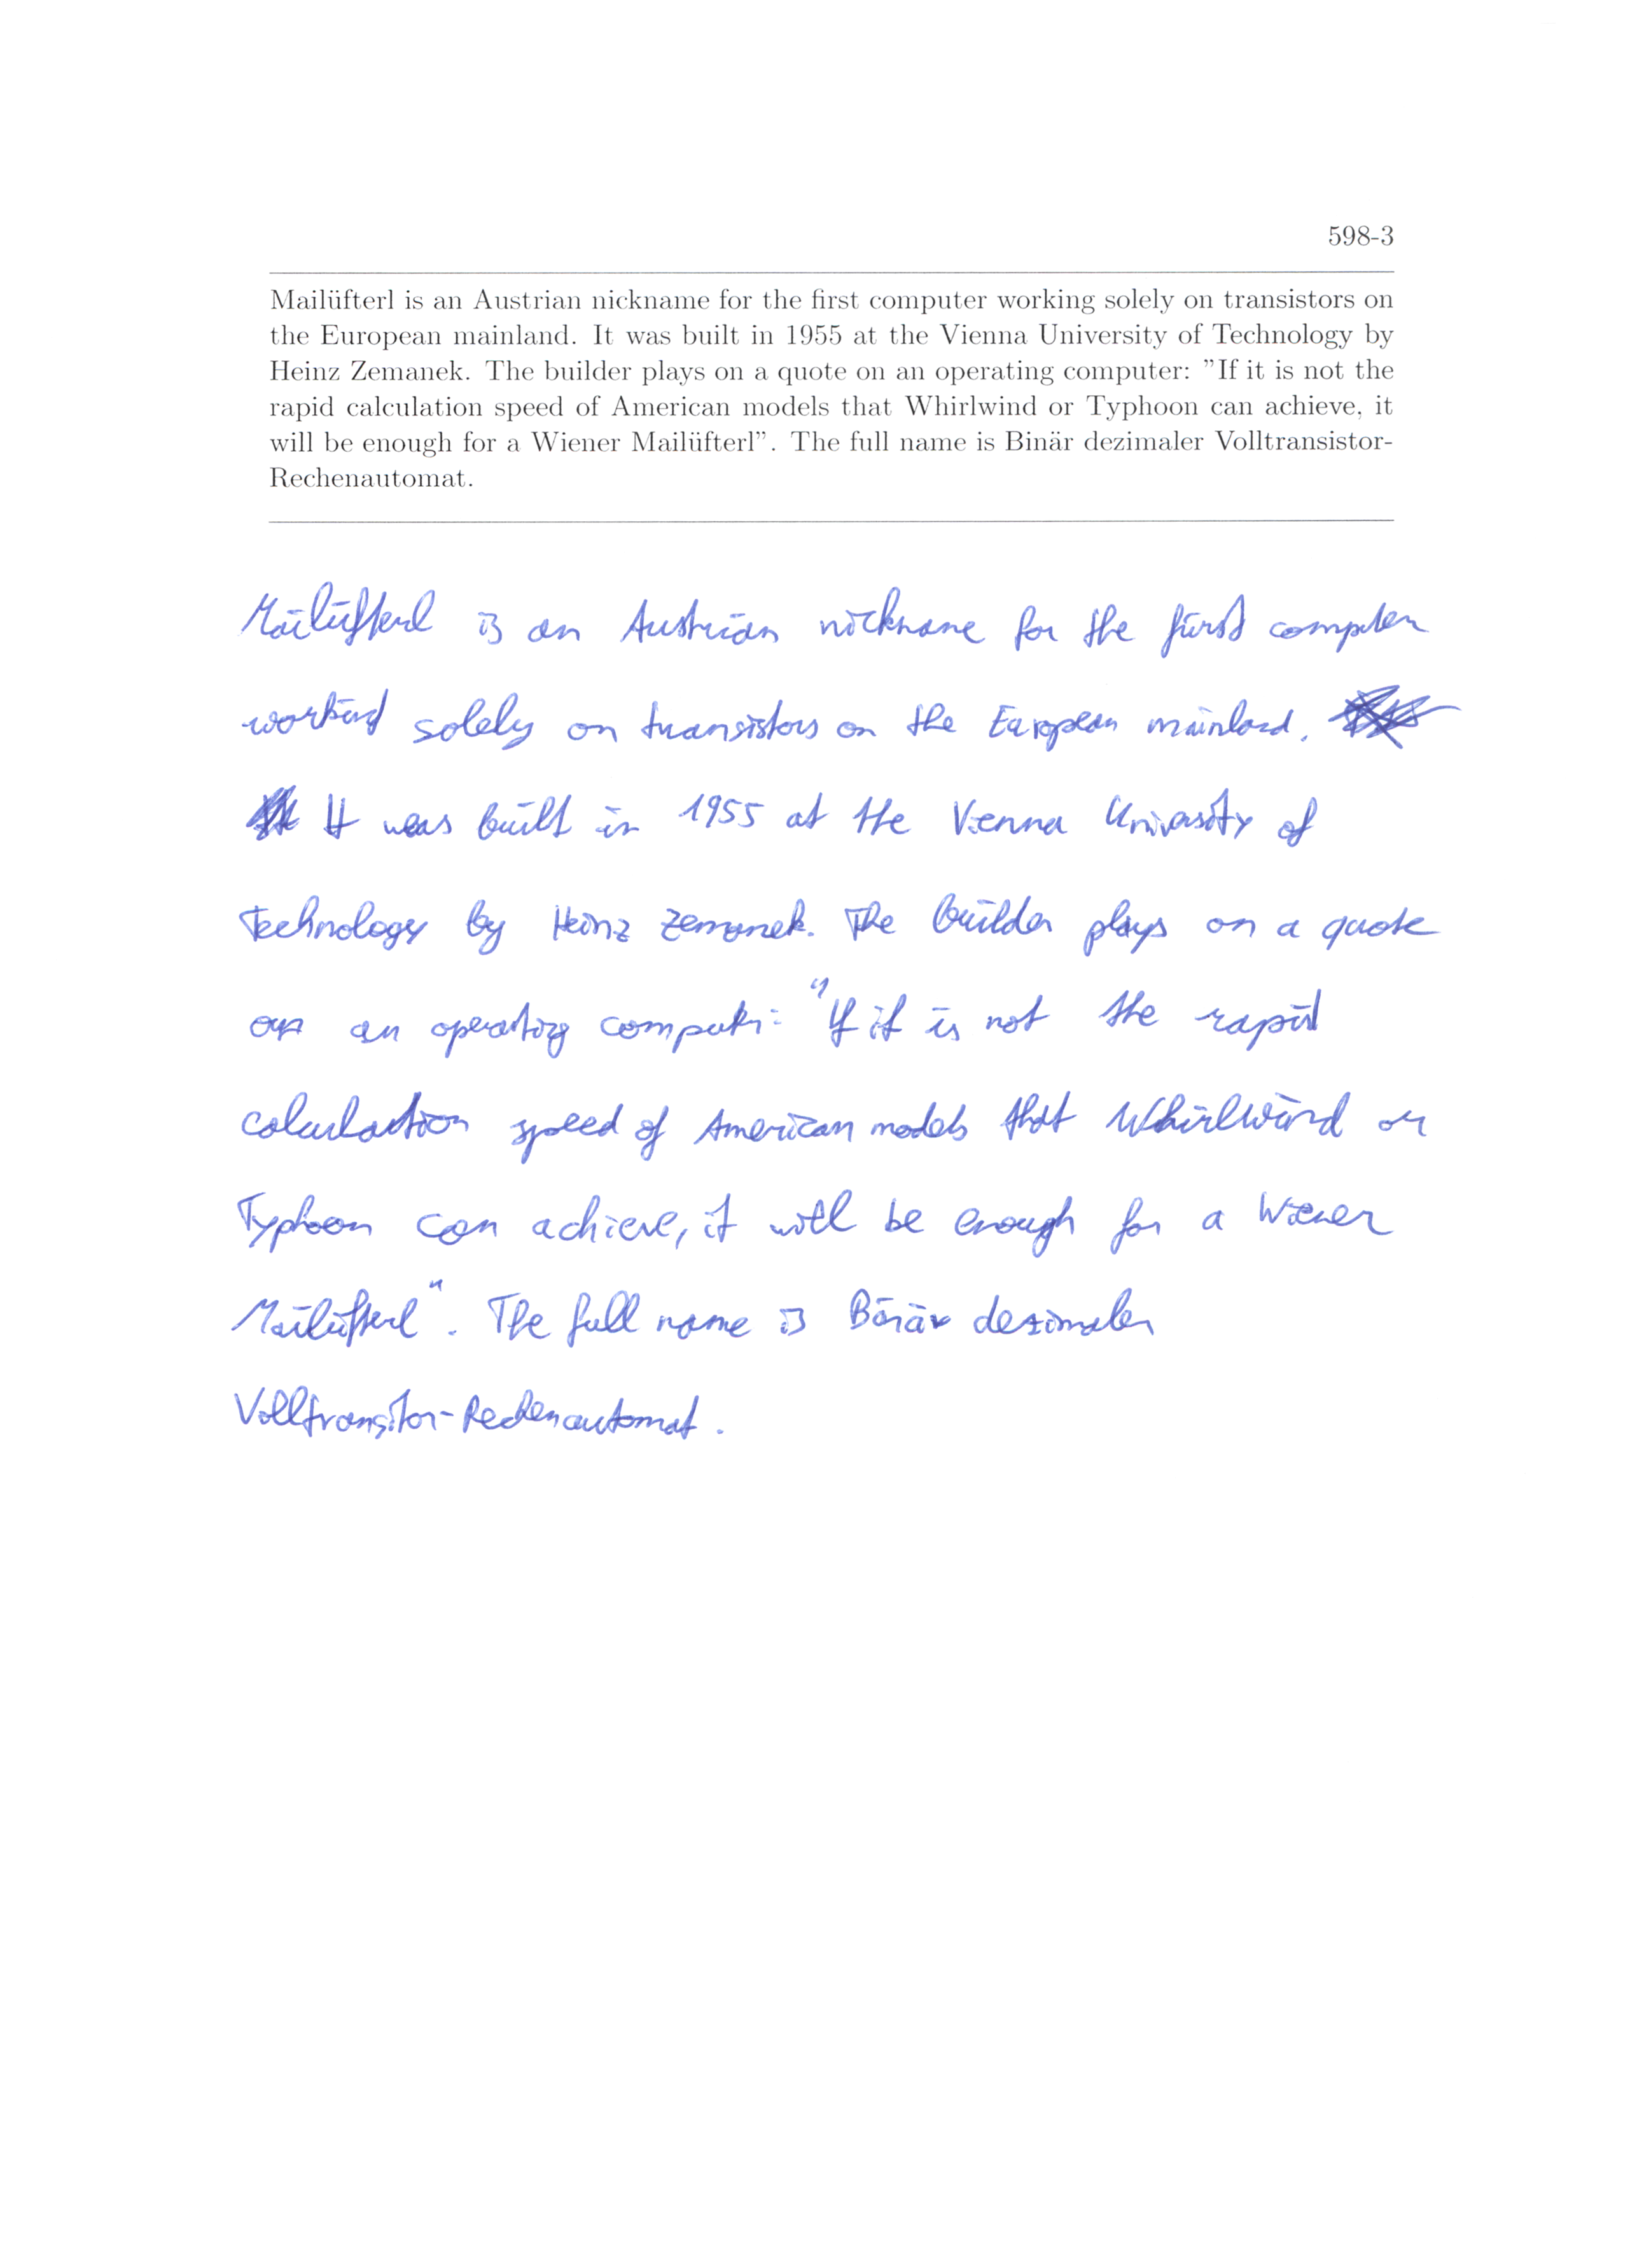 598-3
Mailüfterl is an Austrian nickname for the first computer working solely on transistors on
the European mainland. It was built in 1955 at the Vienna University of Technology by
Heinz Zemanek. The builder plays on a quote on an operating computer: "If it is not the
rapid calculation speed of American models that Whirlwind or Typhoon can achieve, it
will be enough for a Wiener Mailüfterl". The full name is Binär dezimaler Volltransistor-
Rechenautomat.
Mailüfterl is an Austrian nickname for the first computer
workind solely on transistors on the European mainland.
It was built in 1955 at the Vienna University of
Technology by Heinz Zemanek. The builder plays on a quote
on an operating computer: "If it is not the rapid
calculation speed of American models that Whirlwind or
Typhoon can achieve, it will be enough for a Wiener
Mailüfterl". The full name is Binär dezimaler
Volltransitor-Rechenautomat.